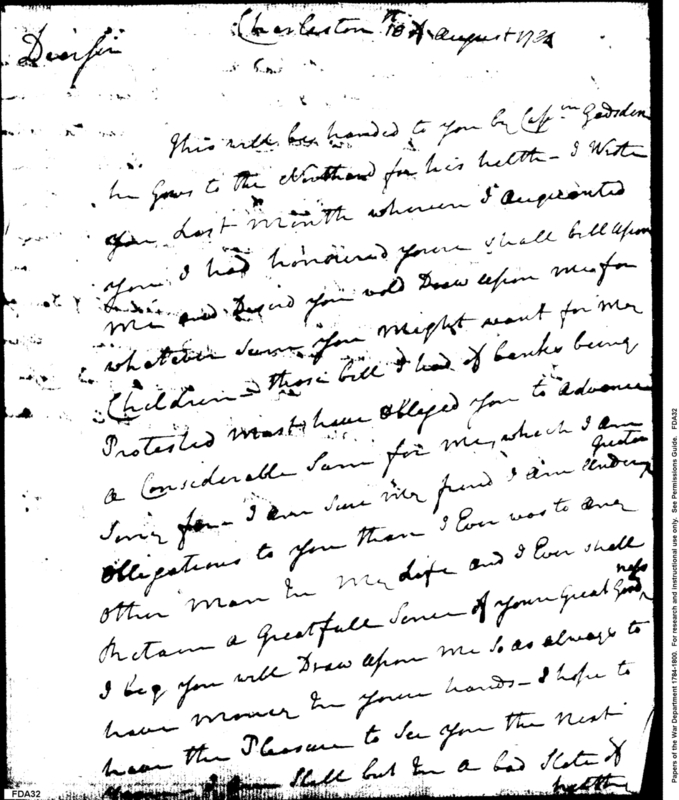 Charleston 18th August 1784
Dear Sir
This will be handed to you by Capn Gadsden
he Goes to the Northard for his helth - I Wrote
you Last Month wherein I acquainted
you I had honoured youre Small bill upon
Me and Desired you wold Draw upon me for
whatever Sum you Might want for My
Children - those bill I had of banks being
Protested Must have obleged you to advance
a Considerable Sum for Me, which I am
Sorry for - I am Sure My friend I am under greater
obligations to you than I Ever was to aney
other Man In My Life and I Ever shall
Retain a Greatfull Sence of youre Great Goodness
I beg you will Draw upon Me So as always to
have Money In youre hands - I hope to
have the Pleasure to See you the Next
Shall but In a bad State of
helth
FDA32
Papers of the War Department 1784-1800. For research and instructional use only. See Permissions Guide. FDA32